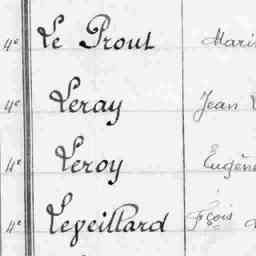 4e Le Prout Mari
4e Leray Jean
4e Leroy Eugène
4e Leveillard Fçois